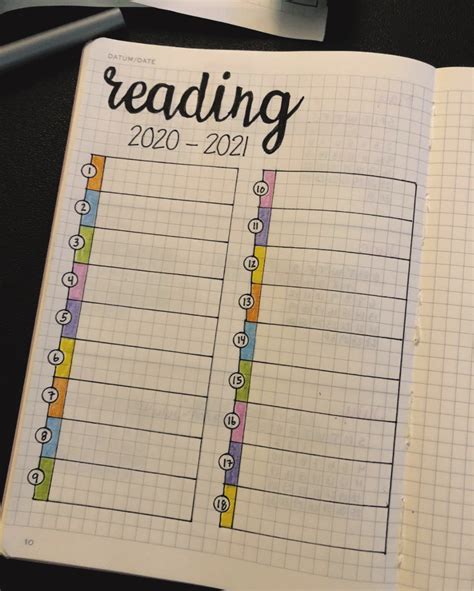 DATUM/DATE
reading
2020 - 2021
1
2
3
4
5
6
7
8
9
10
11
12
13
14
15
16
17
18
10